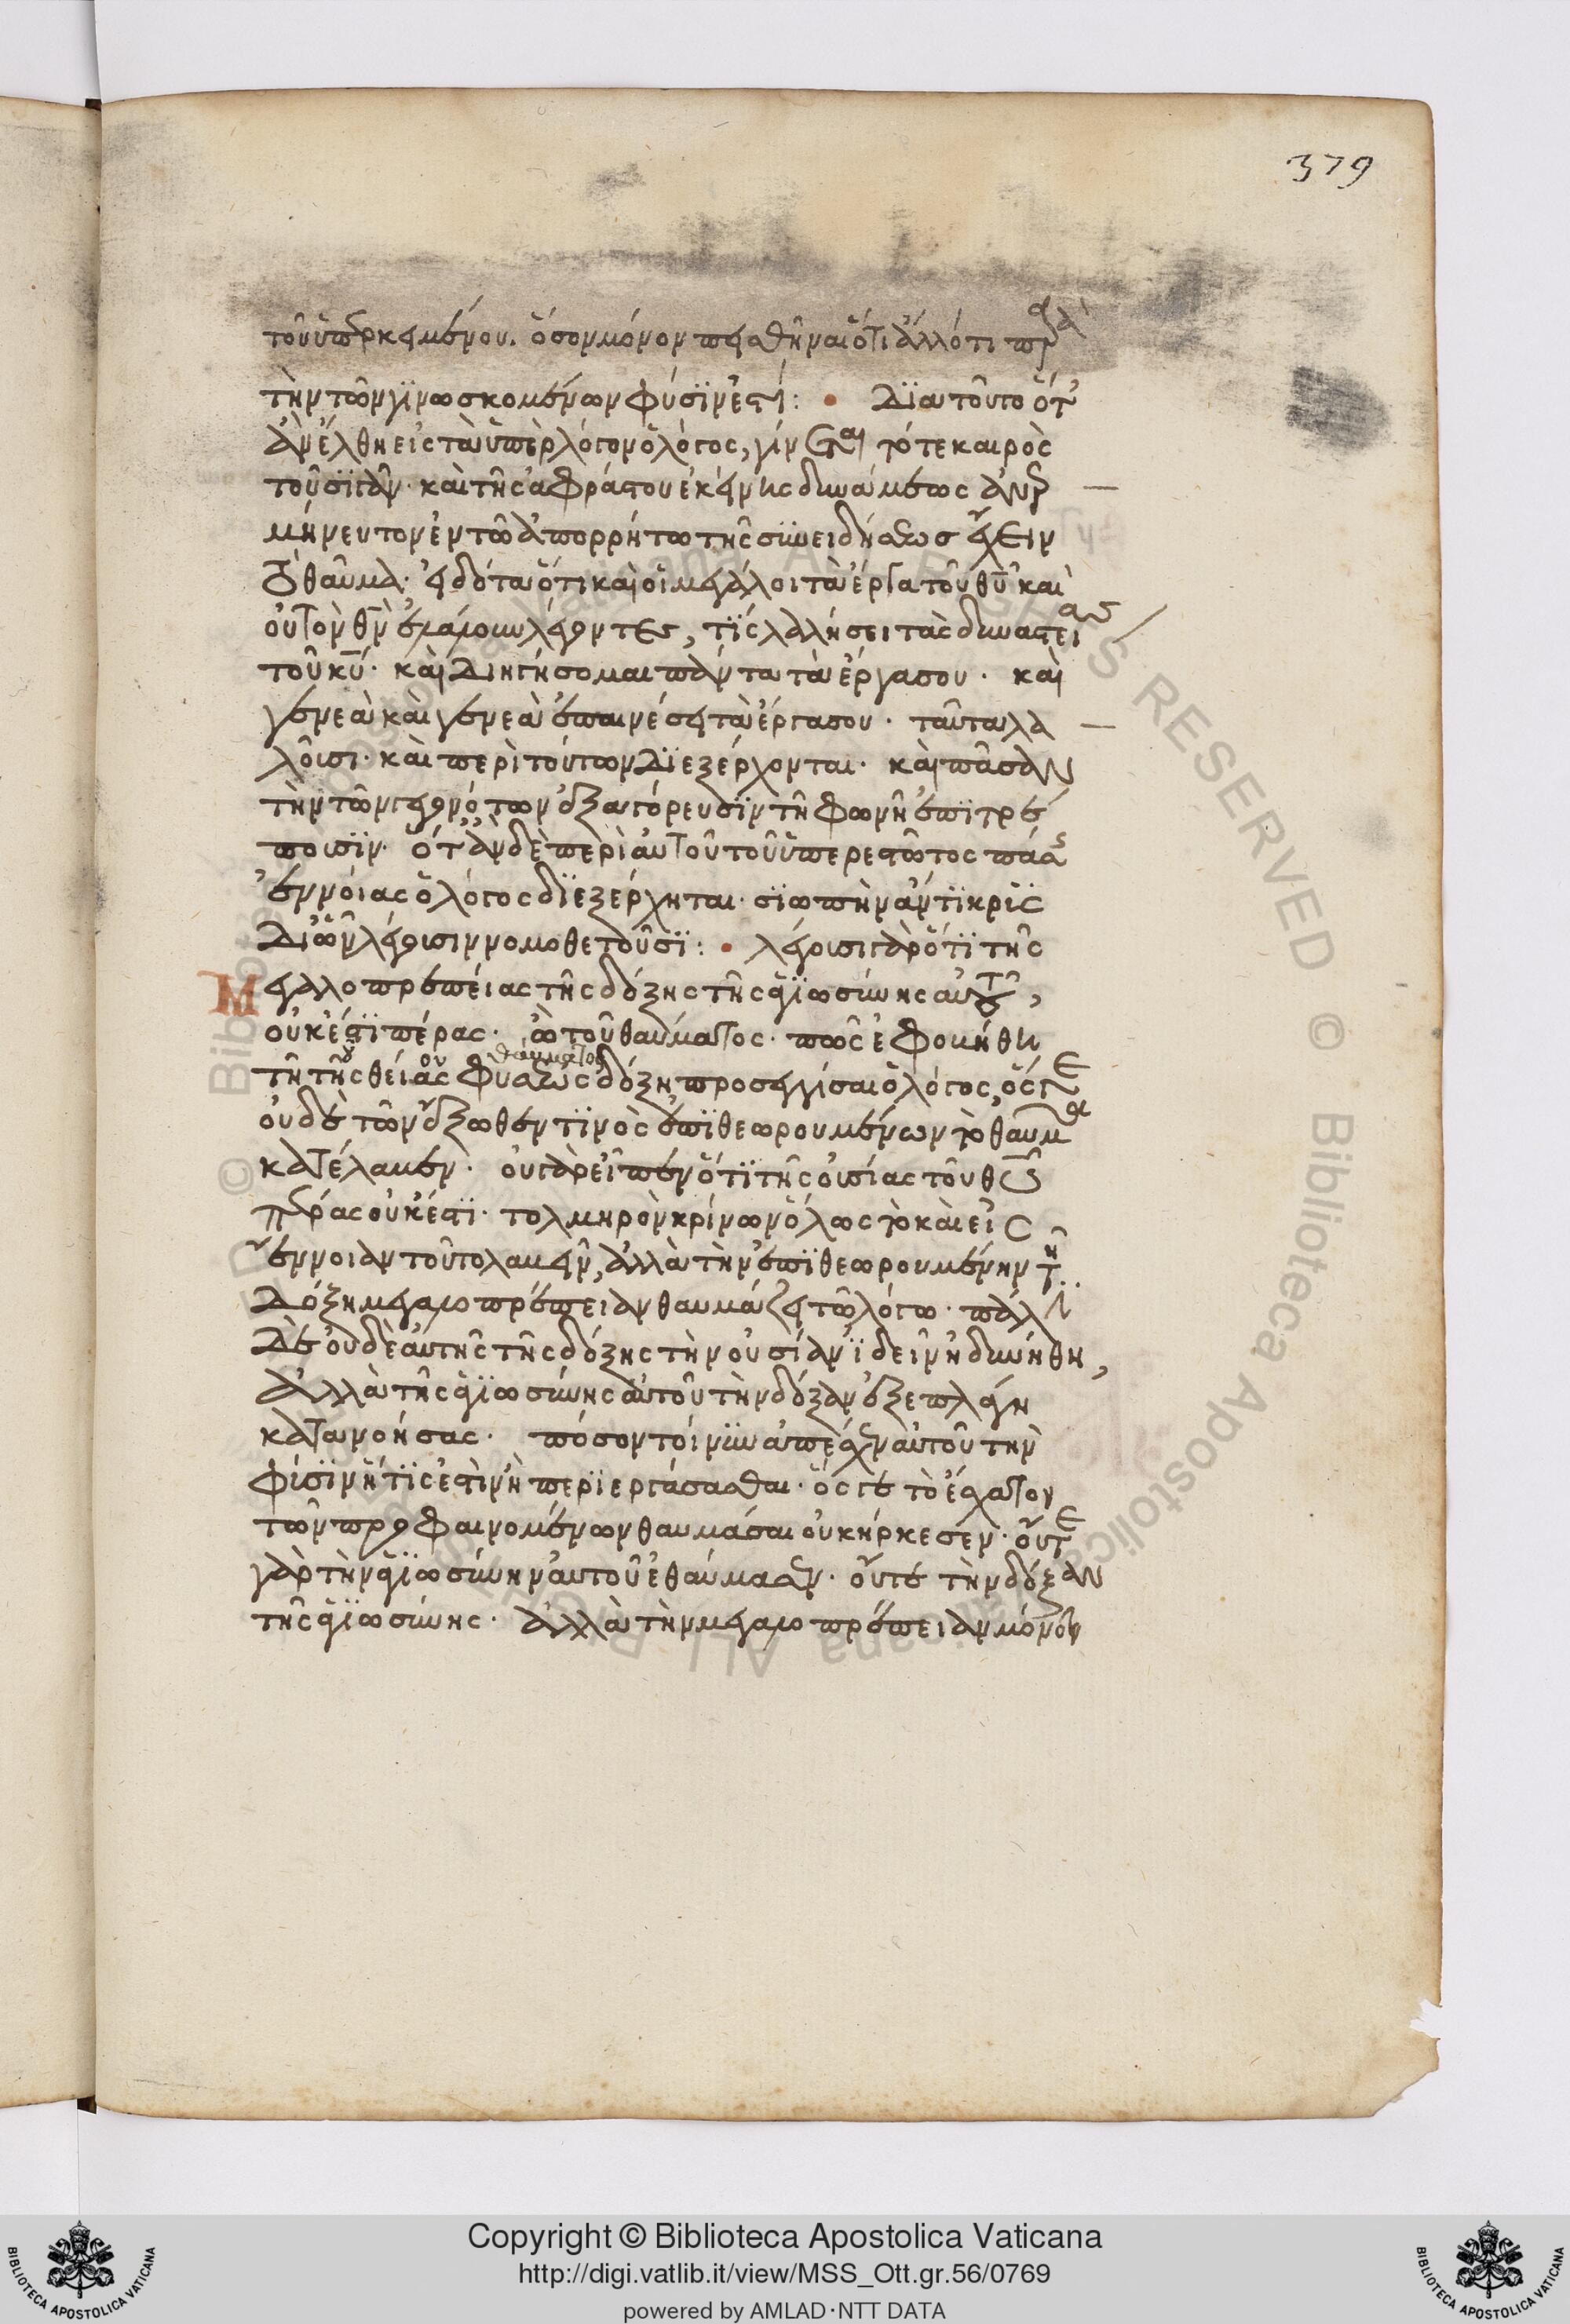 379
τοῦ ὑπερκειμένου. ὅσον μόνον πεισθῆναι ὅτι ἄλλό τι παρὰ
τὴν τῶν γϊνωσκομένων φύσϊν ἐστί: • Δϊα τοῦτο ὅτ
ἂν ἔλθη εἰς τὰ ὑπὲρ λόγον ὁ λόγος, γίνεται τότε καιρὸς
τοῦ σϊγᾶν· καὶ τῆς ἀφράστου ἐκείνης δυνάμεως ἀνερ
μήνευτον ἐν τῶ ἀπορρήτω τῆς συνειδήσεως ἔχειν
θαῦμα· εἰδότα ὅτι καὶ οἱ μεγάλοι τὰ ἔργα τοῦ θυ καὶ
οὐ τὸν θν ἐμεγάλυνον λέγοντες, τίς λαλήσει τὰς δυναστείας
τοῦ κυ· καὶ Διηγήσομαι πάντα τὰ ἔργα σου· καὶ
γενεὰ καὶ γενεὰ ἐπαινέσει τὰ ἔργα σου· ταῦτα λα
λοῦσι· καὶ περὶ τούτων Διεξέρχονται· καὶ πᾶσαν
τὴν τῶν γεγονότων ἐξαγόρευσϊν τῆ φωνῆ ἐπϊτρέ
πουσϊν· ὅτ ἂν δὲ περὶ αὐτοῦ τοῦ ὑπερεστῶτος πάσης
ἐννοίας ὁ λόγος δϊεξέρχηται· σϊωπὴν ἀντϊκρὺς
Δι ὧν λέγουσιν νομοθετοῦσϊ: • λέγουσι γὰρ ὅτϊ τῆς
Μεγαλοπρεπείας τῆς δόξης τῆς ἁγϊωσύνης αὐτοῦ,
οὐκ ἔστϊ πέρας· ὢ τοῦ θαύματος· πῶς ἐφοβήθη
θαύματος
τῆ τῆς θείας φύσεως δόξη προσεγγίσαι ὁ λόγος, ὅς γε
οὐδὲ τῶν ἔξωθεν τϊνὸς ἐπϊθεωρουμένων τὸ θαῦμα
κατέλαβεν· οὐ γὰρ εἶπεν ὅτϊ τῆς οὐσίας τοῦ θυ
πέρας οὐκ ἔστϊ· τολμηρὸν κρίνων ὅλως τὸ καὶ εἰς
ἔννοιαν τοῦτο λαβεῖν, ἀλλὰ τὴν ἐπϊθεωρουμένην τῆ
Δόξη μεγαλοπρέπειαν θαυμάζει τῶ λόγω· πάλιν
Δὲ οὐδὲ αὐτῆς τῆς δόξης τὴν οὐσίαν ἰδεῖν ἠδυνήθη,
Ἀλλὰ τῆς ἁγϊωσύνης αὐτοῦ τὴν δόξαν ἐξεπλάγη
κατανοήσας· πόσον τοίνυν ἀπέσχεν αὐτοῦ τὴν
φύσϊν ἥ τϊς ἐστὶν ἢ περϊεργάσασθαι· ὅς γε τὸ ἔσχατον
τῶν προφαινομένων θαυμάσαι οὐκ ἤρκεσεν· οὔτε
γὰρ τὴν ἁγϊωσύνην αὐτοῦ ἐθαύμασεν· οὔτε τὴν δόξαν
τῆς ἁγϊωσύνης· ἀλλὰ τὴν μεγαλοπρέπειαν μόνον
Copyright © Biblioteca Apostolica Vaticana
http://digi.vatlib.it/view/MSS_Ott.gr.56/0769
powered by AMLAD·NTT DATA